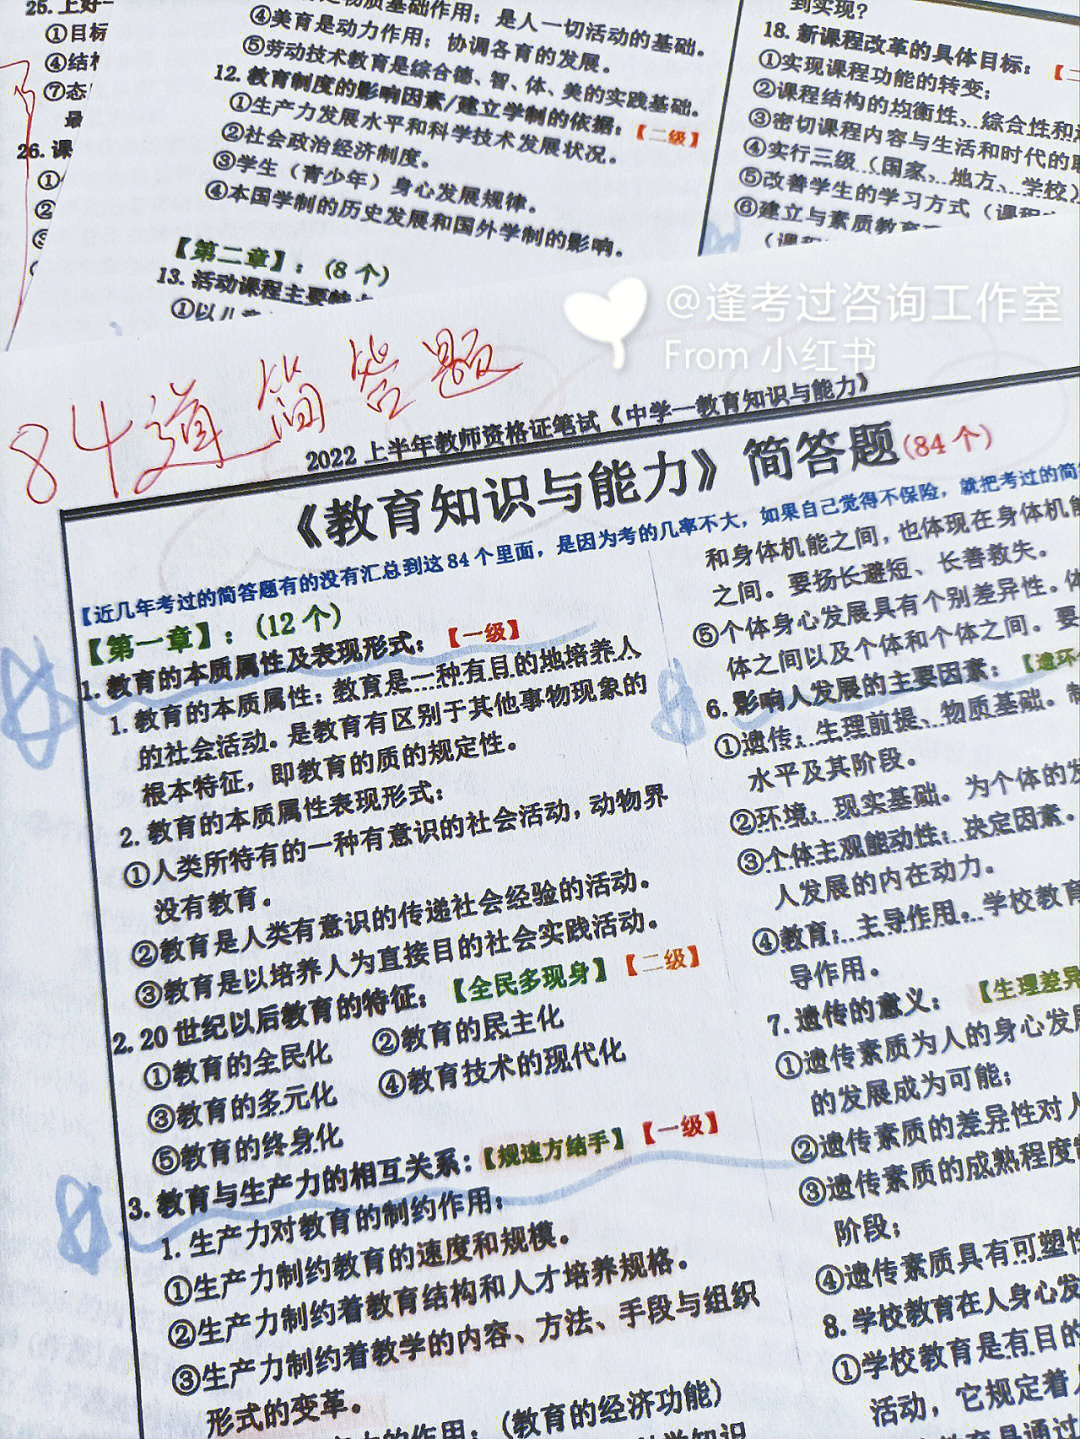 25. 上好一
①目标
④结构
⑦态
最
26. 课
①
②
③
物质基础作用；是人一切活动的基础。
④美育是动力作用；协调各育的发展。
⑤劳动技术教育是综合德、智、体、美的实践基础。
12. 教育制度的影响因素/建立学制的依据：【二级】
①生产力发展水平和科学技术发展状况。
②社会政治经济制度。
③学生（青少年）身心发展规律。
④本国学制的历史发展和国外学制的影响。
【第二章】：(8个)
13. 活动课程主要特点
①以儿童
到实现？
18. 新课程改革的具体目标：
①实现课程功能的转变；
②课程结构的均衡性、综合性和选
③密切课程内容与生活和时代的联
④实行三级（国家、地方、学校）
⑤改善学生的学习方式（课程
⑥建立与素质教育
（课程
@逢考过咨询工作室
From 小红书
84道简答题
2022上半年教师资格证笔试《中学—教育知识与能力》
《教育知识与能力》简答题(84个)
【近几年考过的简答题有的没有汇总到这84个里面，是因为考的几率不大，如果自己觉得不保险，就把考过的简答
【第一章】：(12个)
1. 教育的本质属性及表现形式：【一级】
1. 教育的本质属性：教育是一种有目的地培养人
的社会活动。是教育有区别于其他事物现象的
根本特征，即教育的质的规定性。
2. 教育的本质属性表现形式：
①人类所特有的一种有意识的社会活动，动物界
没有教育。
②教育是人类有意识的传递社会经验的活动。
③教育是以培养人为直接目的社会实践活动。
2. 20世纪以后教育的特征：【全民多现身】【二级】
①教育的全民化 ②教育的民主化
③教育的多元化 ④教育技术的现代化
⑤教育的终身化
3. 教育与生产力的相互关系：【规速方结手】【一级】
1. 生产力对教育的制约作用：
①生产力制约教育的速度和规模。
②生产力制约着教育结构和人才培养规格。
③生产力制约着教学的内容、方法、手段与组织
形式的变革。
的作用：(教育的经济功能)
学知识
和身体机能之间，也体现在身体机能
之间。要扬长避短、长善救失。
⑤个体身心发展具有个别差异性。体
体之间以及个体和个体之间。要
6. 影响人发展的主要因素：【遗环
①遗传：生理前提、物质基础。制
水平及其阶段。
②环境：现实基础。为个体的发
③个体主观能动性：决定因素。
人发展的内在动力。
④教育：主导作用。学校教育
导作用。
7. 遗传的意义：【生理差异
①遗传素质为人的身心发展
的发展成为可能；
②遗传素质的差异性对人
③遗传素质的成熟程度
阶段；
④遗传素质具有可塑性
8. 学校教育在人身心发
①学校教育是有目的
活动，它规定着人
教育是通过